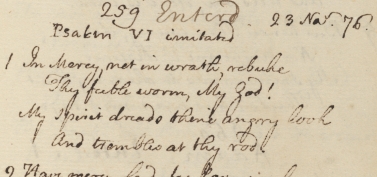 259 Enterd. 23 Nov. 76.
Psalm VI imitated
1 In Mercy, not in wrath, rebuke
Thy feeble worm, My God!
My Spirit dreads thine angry look
And trembles at thy rod.
2 Have mercy, Lord, for